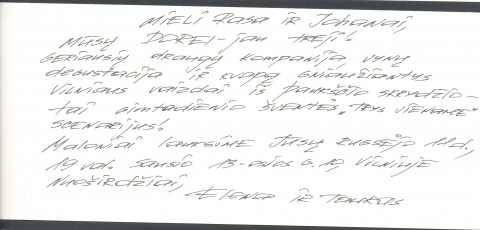 MIELI RASA IR JOHANAI,
MŪSŲ DOREI - jau TREJI!
GERIAUSIŲ draugų kompanija, vynų
degustacija IR kvapą gniaužiantys
Vilniaus vaizdai iš paukščio skrydžio -
tai gimtadienio šventės „TRYS VIENAME"
SCENARIJUS!
Maloniai lauksime Jūsų rugsėjo 11 d.,
19 val. Sausio 13-osios g. 10, Vilniuje
Nuoširdžiai,
Elena IR